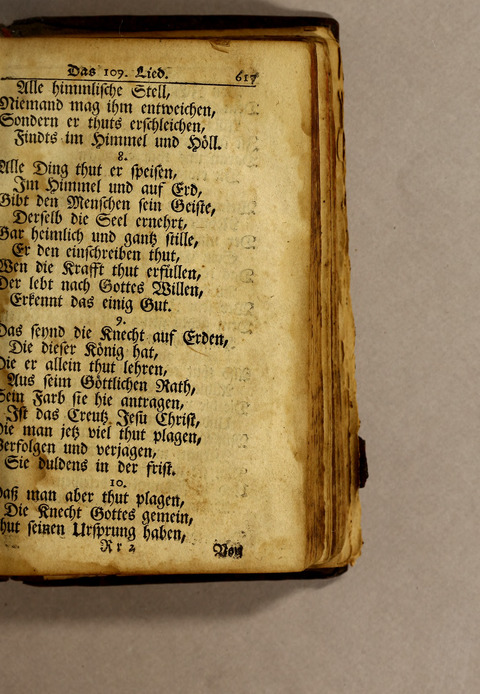 Das 109. Lied. 617
Alle himmlische Stell,
Niemand mag ihm entweichen,
Sondern er thuts erschleichen,
Findts im Himmel und Höll.
8.
Alle Ding thut er speisen,
Im Himmel und auf Erd,
Gibt den Menschen sein Geiste,
Derselb die Seel ernehrt,
Gar heimlich und gantz stille,
Er den einschreiben thut,
Wen die Krafft thut erfüllen,
Der lebt nach Gottes Willen,
Erkennt das einig Gut.
9.
Das seynd die Knecht auf Erden,
Die dieser König hat,
Die er allein thut lehren,
Aus seim Göttlichen Rath,
Sein Farb sie hie antragen,
Ist das Creutz Jesu Christ,
Die man jetz viel thut plagen,
Verfolgen und verjagen,
Sie duldens in der frist.
10.
Daß man aber thut plagen,
Die Knecht Gottes gemein,
Thut seinen Ursprung haben,
Rr 2 Von